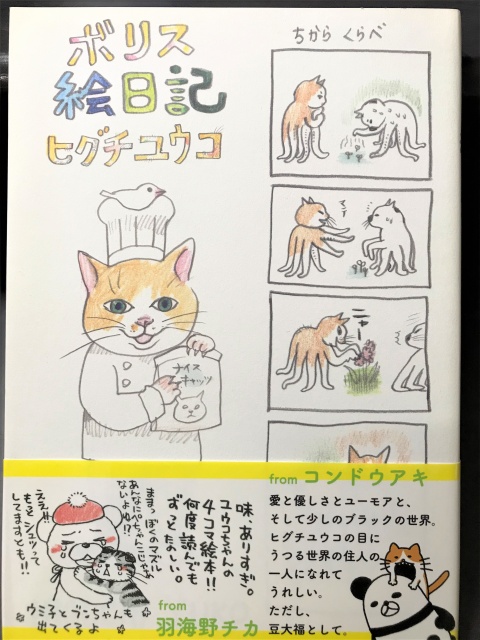 ボリス
絵日記
ヒグチユウコ
ちから くらべ
ニャー
ナイス
キャッツ
from コンドウアキ
愛と優しさとユーモアと、
そして少しのブラックの世界。
ヒグチユウコの目に
うつる世界の住人の
一人になれて
うれしい。
ただし、
豆大福として。
味、ありすぎ。
ユウコちゃんの
4コマ絵本!!
何度読んでも
ずっとたのしい。
from
羽海野チカ
あんなにぺちゃんこじゃ
ないよゆ!?
ええ!!
もっとシュッって
してますとも!!
ウミ子とブンちゃんも
出てくるよ